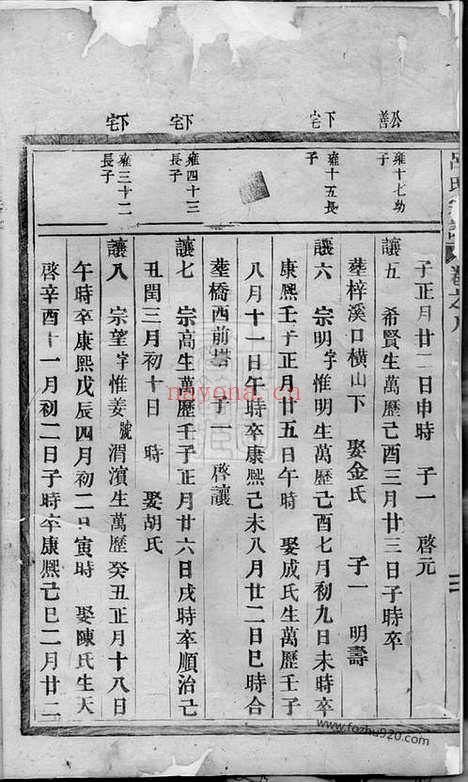 呂氏宗譜 卷之八
公善
雍十七幼子
下宅
雍十五長子
下宅
雍四十三長子
下宅
雍三十二長子
子正月廿二日申時 子一 啓元
讓五 希賢生萬歷己酉三月廿三日子時卒
塟梓溪口橫山下 娶金氏 子一 明壽
讓六 宗明字惟明生萬歷己酉七月初九日未時卒
康熙壬子正月廿五日午時 娶成氏生萬歷壬子
八月十一日午時卒康熙己未八月廿二日巳時合
塟橋西前塔 子一 啓讓
讓七 宗高生萬歷壬子正月廿六日戌時卒順治己
丑閏三月初十日 時 娶胡氏
讓八 宗望字惟姜號渭濱生萬歷癸丑正月十八日
午時卒康熙戊辰四月初二日寅時 娶陳氏生天
啓辛酉十一月初二日子時卒康熙己巳二月廿二
nayona.cn
www.fozhu920.com